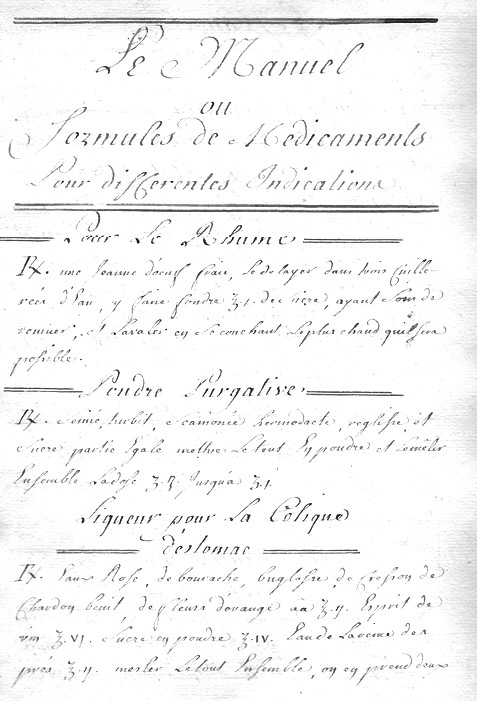 Le Manuel
ou
Formules de Medicaments
Pour differentes Indications
Pour Le Rhume
Rx. une Jeaune d'oeuf frais, Le delayer dans trois Cuille-
rées d'Eau, y faire fondre ʒ.j. de Sucre, ayant Soin de
remuer, et L'avaler en Se couchant Le plus chaud qu'il sera
possible.
Poudre Purgative
Rx. Senné, turbit, Scamonée hermodacte, reglisse et
Sucre partie Egale mettre Le tout En poudre et Le meler
Ensemble La dose ʒ.ß. Jusqu'a ʒ.j.
Liqueur pour La Colique
d'estomac
Rx. Eaux Rose, de bourache, buglosse, de Cresson de
Chardon benit de fleurs d'orange aa ʒ.ij. Esprit de
vin ʒ.VI. Sucre en poudre ʒ.IV. Eau de La reine des
prés ʒ.ij. mesler Le tout Ensemble, on en prend deux